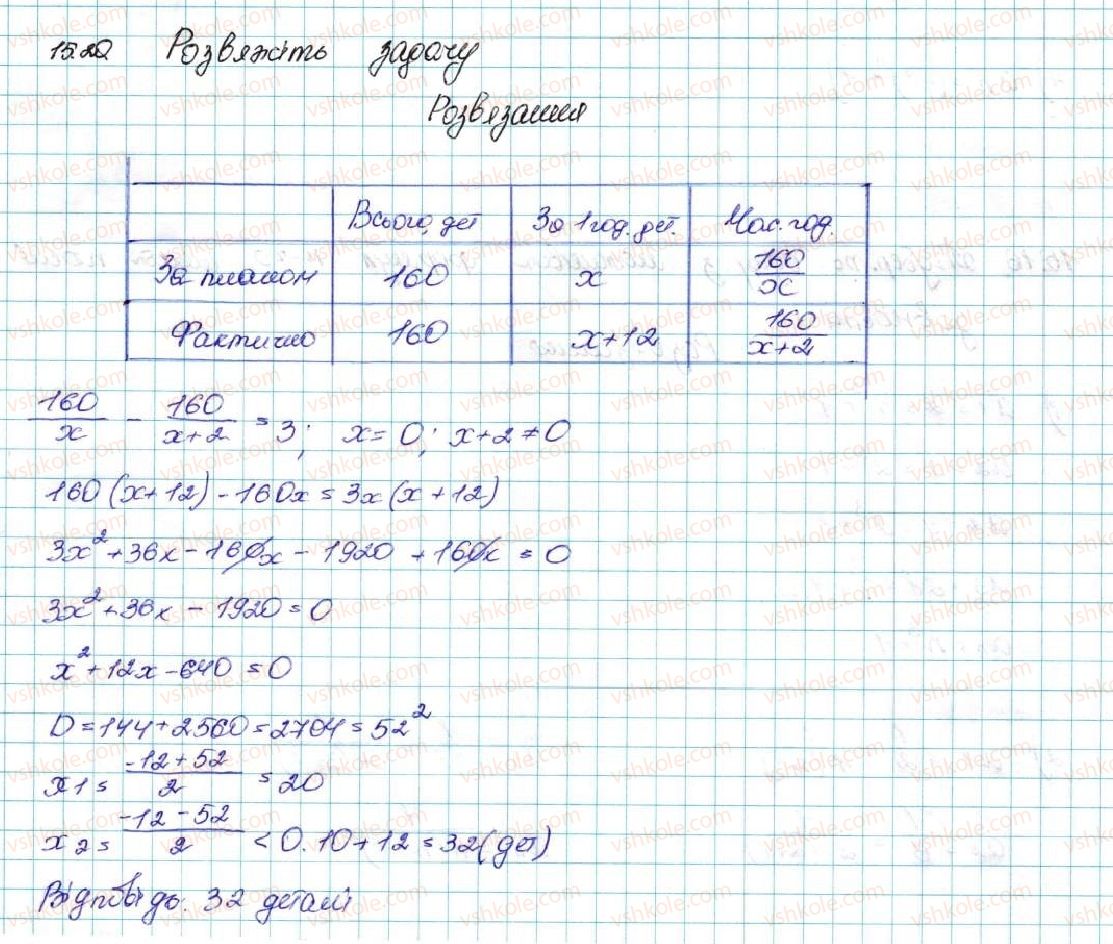 15.20 Розвяжіть задачу
Розвязання
Всього, дет За 1 год. дет. Час. год.
За планом 160 x 160/x
Фактично 160 x+12 160/x+2
160/x - 160/x+2 = 3; x = 0; x+2 ≠ 0
160(x+12) - 160x = 3x(x+12)
3x² + 36x - 160x - 1920 + 160x = 0
3x² + 36x - 1920 = 0
x² + 12x - 640 = 0
D = 144 + 2560 = 2704 = 52²
x1 = -12 + 52/2 = 20
x2 = -12 - 52/2 < 0. 10 + 12 = 32 (дет)
Відповідь. 32 деталі